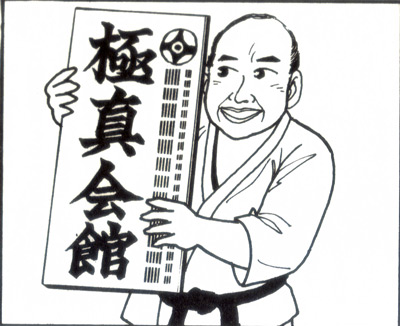 極真会館